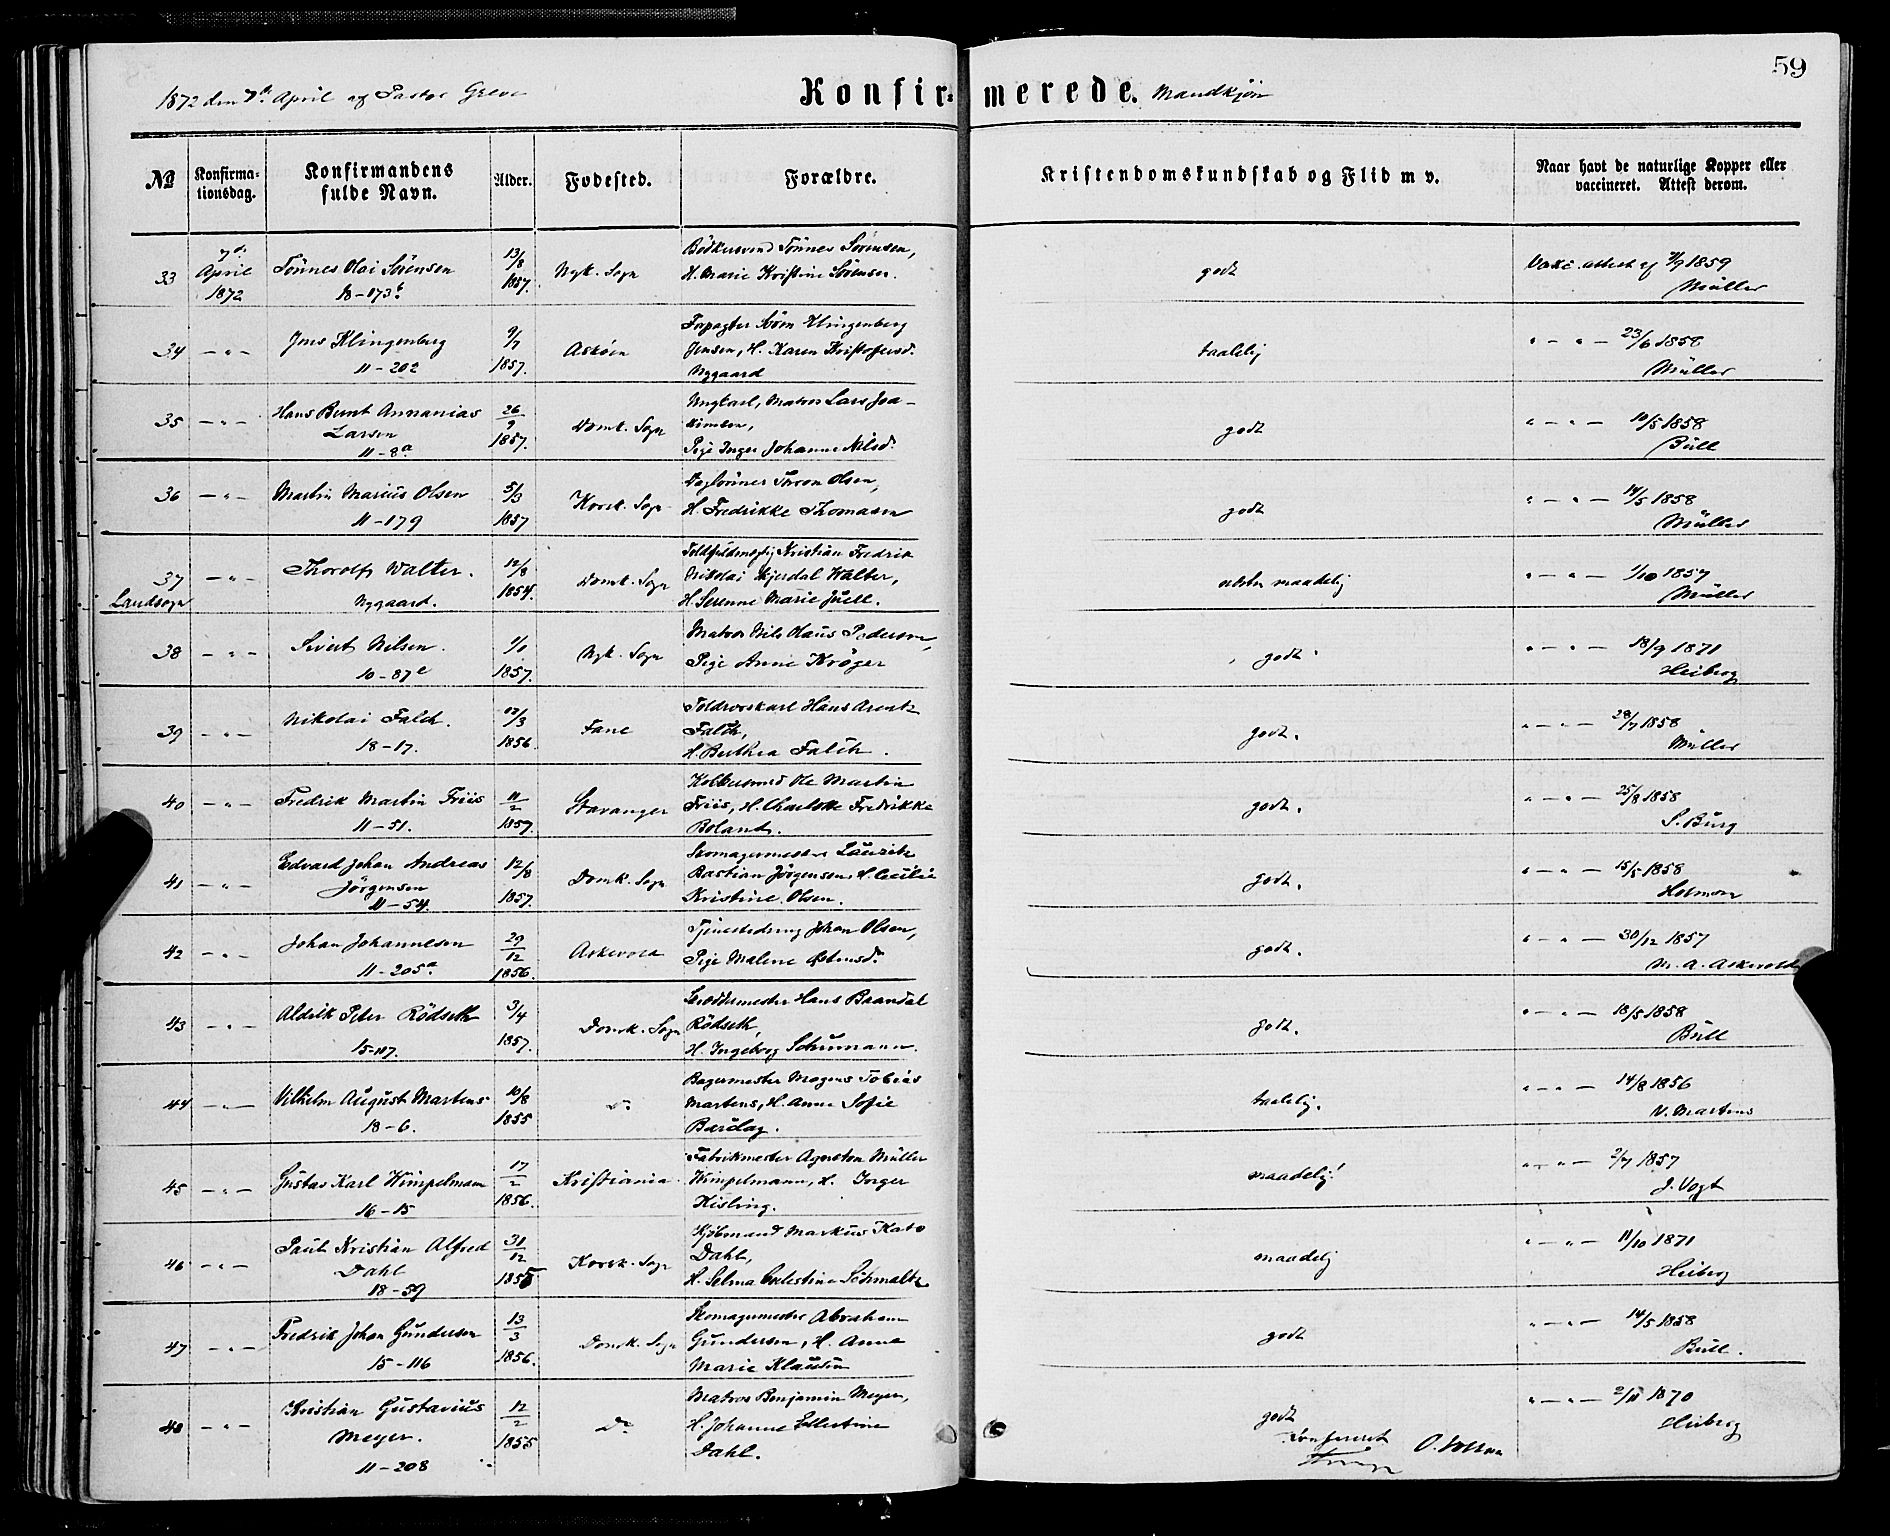 59
1872 den 7de April af Pastor Greve
Konfir- merede. Mandkjøn
No Konfirma-tionsdag. Konfirmandens fulde Navn. Alder. Fødested. Forældre. Kristendomskundskab og Flid m v. Naar havt de naturlige Kopper eller vaccineret. Attest derom.
33 7de April 1872 Tönnes Olai Sörensen 18-173b 13/8 1857. Nyk. Sogn Bödkersvend Tönnes Sörensen, H. Marie Kristine Sörensen. godt Vaxc. attest af 7/9 1859 Müller
34 — " — Jens Klingenberg 11-202 9/7 1857. Askøen Forpagter Sörn Klingenberg Jensen, H. Karen Kristofersd. Nygaard taalelig " — " — 23/6 1858 Müller
35 — " — Hans Bernt Annanias Larsen 11-8a 26/9 1857. Domk. Sogn Ungkarl, Matros Lars Joakimsen, Pige Inger Johanne Nilsd. godt " — " — 10/5 1858 Büll
36 — " — Martin Marius Olsen 11-179 5/3 1857 Korsk. Sogn Dagl\u00f6nner Olsen, H. Fredrikke Thomasen godt " — " — 14/5 1858 Müller
37 Landsogn — " — Thorolf Walter. Nygaard. 12/8 1854. Domk. Sogn Kristian Fredrik Nikolai Walter, H. Serenne Marie Juell. maadelig " — " — 1/10 1857 Müller
38 — " — Sivert Nilsen. 10-87e 1/1 1857. Nyk. Sogn Matros Nils Olaus Pedersen, Pige Anne Kröger godt " — " — 18/9 1871 Heiberg
39 — " — Nikolai Falch. 18-17. 17/3 1856. Fane Toldroerskarl Hans Arentz Falch, H. Berthea Falch. godt. " — " — 28/7 1858 Müller
40 — " — Fredrik Martin Friis 11-51. 11/2 1857. Stavanger Ole Martin Friis, H. Charlotte Fredrikke Boland. godt. " — " — 25/8 1858 S. Burg
41 — " — Edvard Johan Andreas Jörgensen 11-54. 12/8 1857. Domk. Sogn Skomagermester Lauritz Bastian Jörgensen, H. Cecilie Kristine Olsen. godt. " — " — 15/5 1858 Holmsen
42 — " — Johan Johannesen 11-205a. 29/12 1856. Askevold Tjenestedreng Johan Olsen, Pige Malene godt. " — " — 30/12 1857 M. A. Askevold
43 — " — Aldrik Peter Rödseth 15-117. 3/4 1857. Domk. Sogn Skræddermester Hans Baandal Rödseth, H. Ingeborg Schumann. godt. " — " — 18/5 1858 Büll
44 — " — Vilhelm August Martens 18-6. 10/8 1855 Do Bagermester Mogens Tobias Martens, H. Anne Sofie Burdag. taalelig. " — " — 14/8 1856 V. Martens
45 — " — Gustav Karl Wimpelmann 16-15 17/2 1856. Kristiania Fabrikmester Agerston Müller Wimpelmann, H. Inger Kisling. maadelig! " — " — 2/7 1857 J. Vogt
46 — " — Paul Kristian Alfred Dahl 18-59 31/12 1855 Korsk. Sogn Kjöbmand Markus Kato Dahl, H. Selma Celestine Schmaltz maadelig " — " — 11/10 1871 Heiberg
47 — " — Fredrik Johan Gundersen 15-116 13/3 1856. Domk. Sogn Skomagermester Abraham Gundersen, H. Anne Marie Klausen godt " — " — 14/5 1858 Büll.
48 — " — Kristian Gustavius Meyer. 11-208 12/2 1855 Do Matros Benjamin Meyer, H. Johanne Ellertine Dahl. godt " — " — 2/11 1870 Heiberg
Konfereret